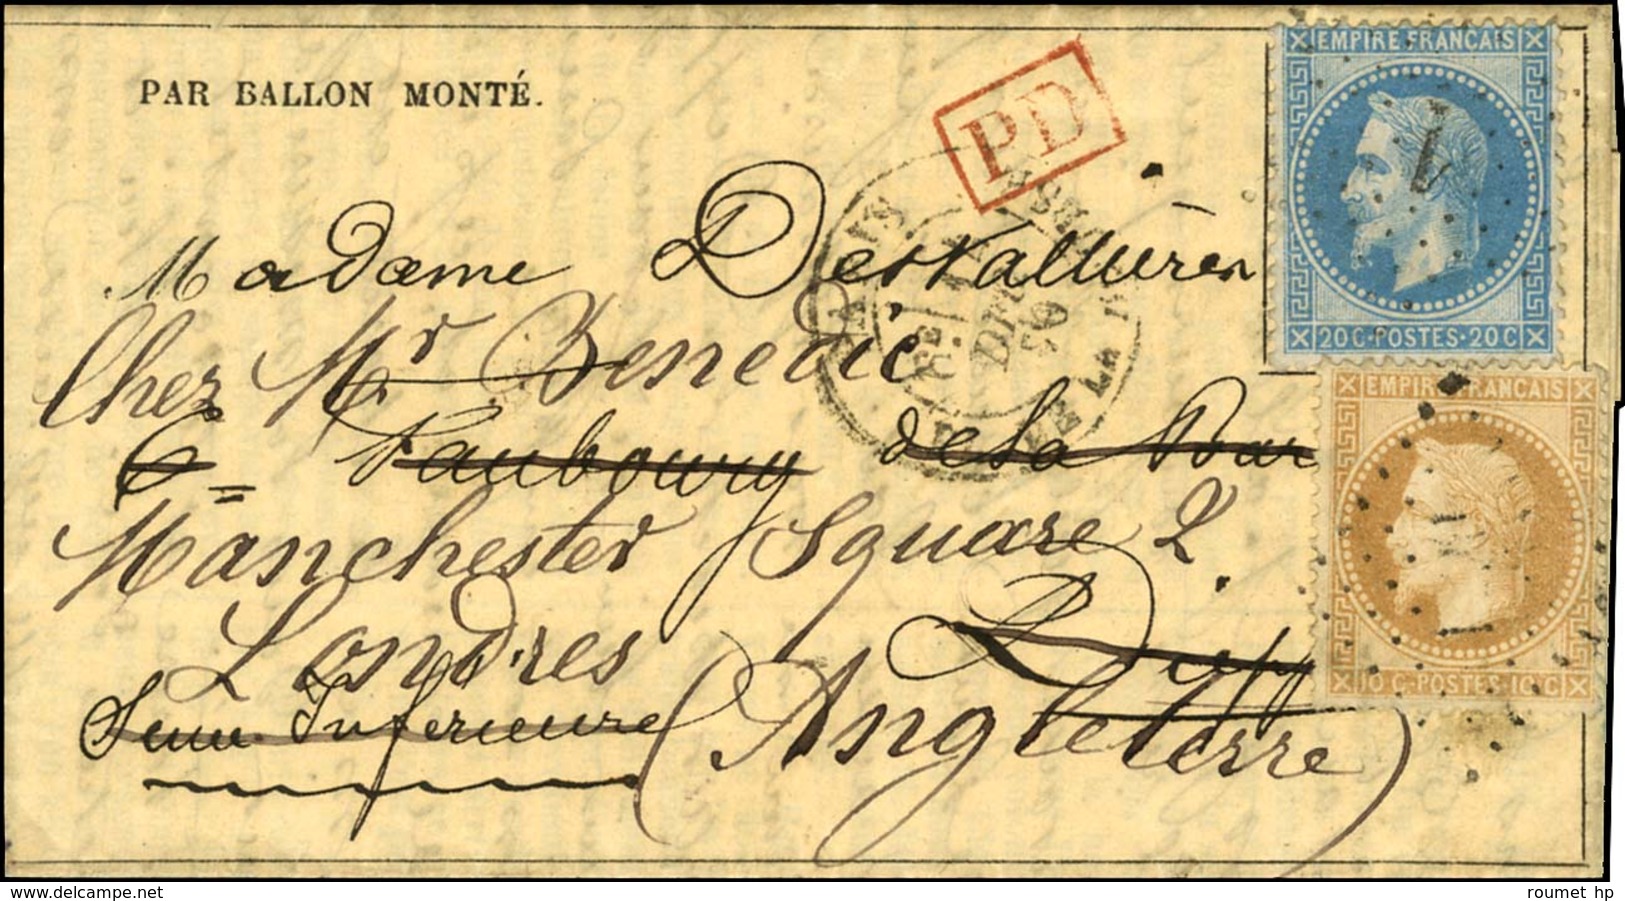 PAR BALLON MONTÉ.
PD
EMPIRE FRANÇAIS
1
20 C · POSTES · 20 C
Madame Desvallières
Chez Mr Benedic
6 = Faubourg de la Bar
Manchester Square 2
Londres
Seine Inférieure (Angleterre)
EMPIRE FRANÇAIS
10 C · POSTES · 10 C
PARIS
DE LA
70
www.delcampe.net
roumet hp